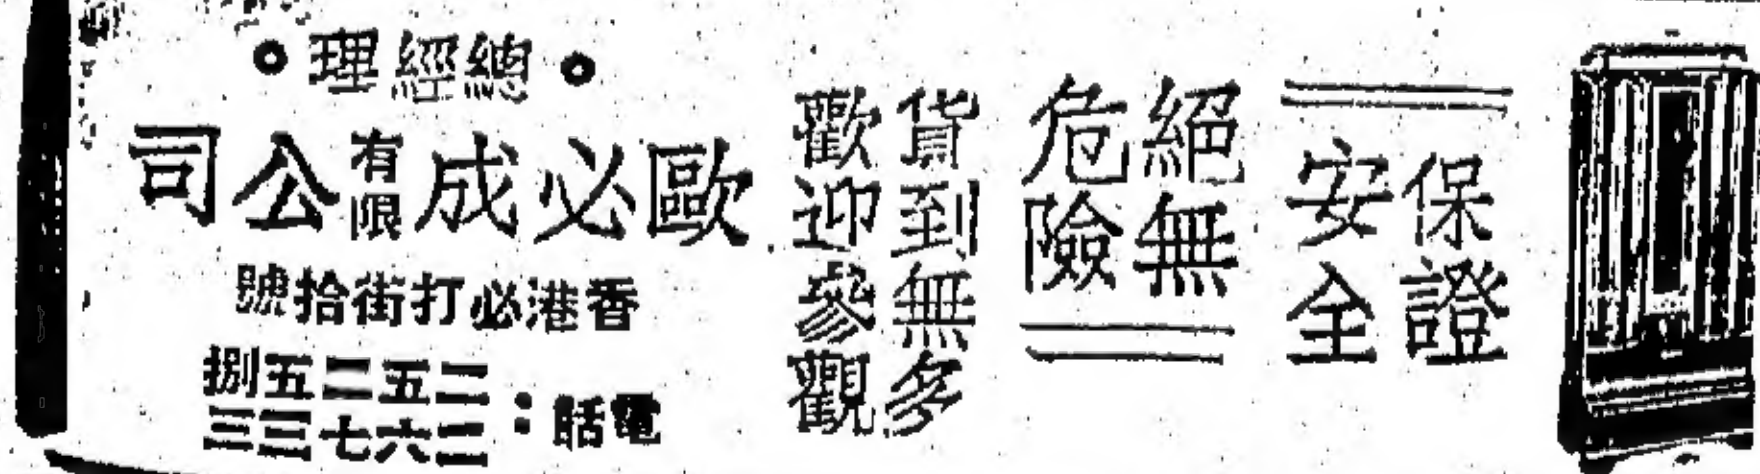 保證
安全
絕無
危險
貨到無多
歡迎參觀
總經理
歐必成有限公司
香港必打街拾號
電話：二五二五捌
二六七三三